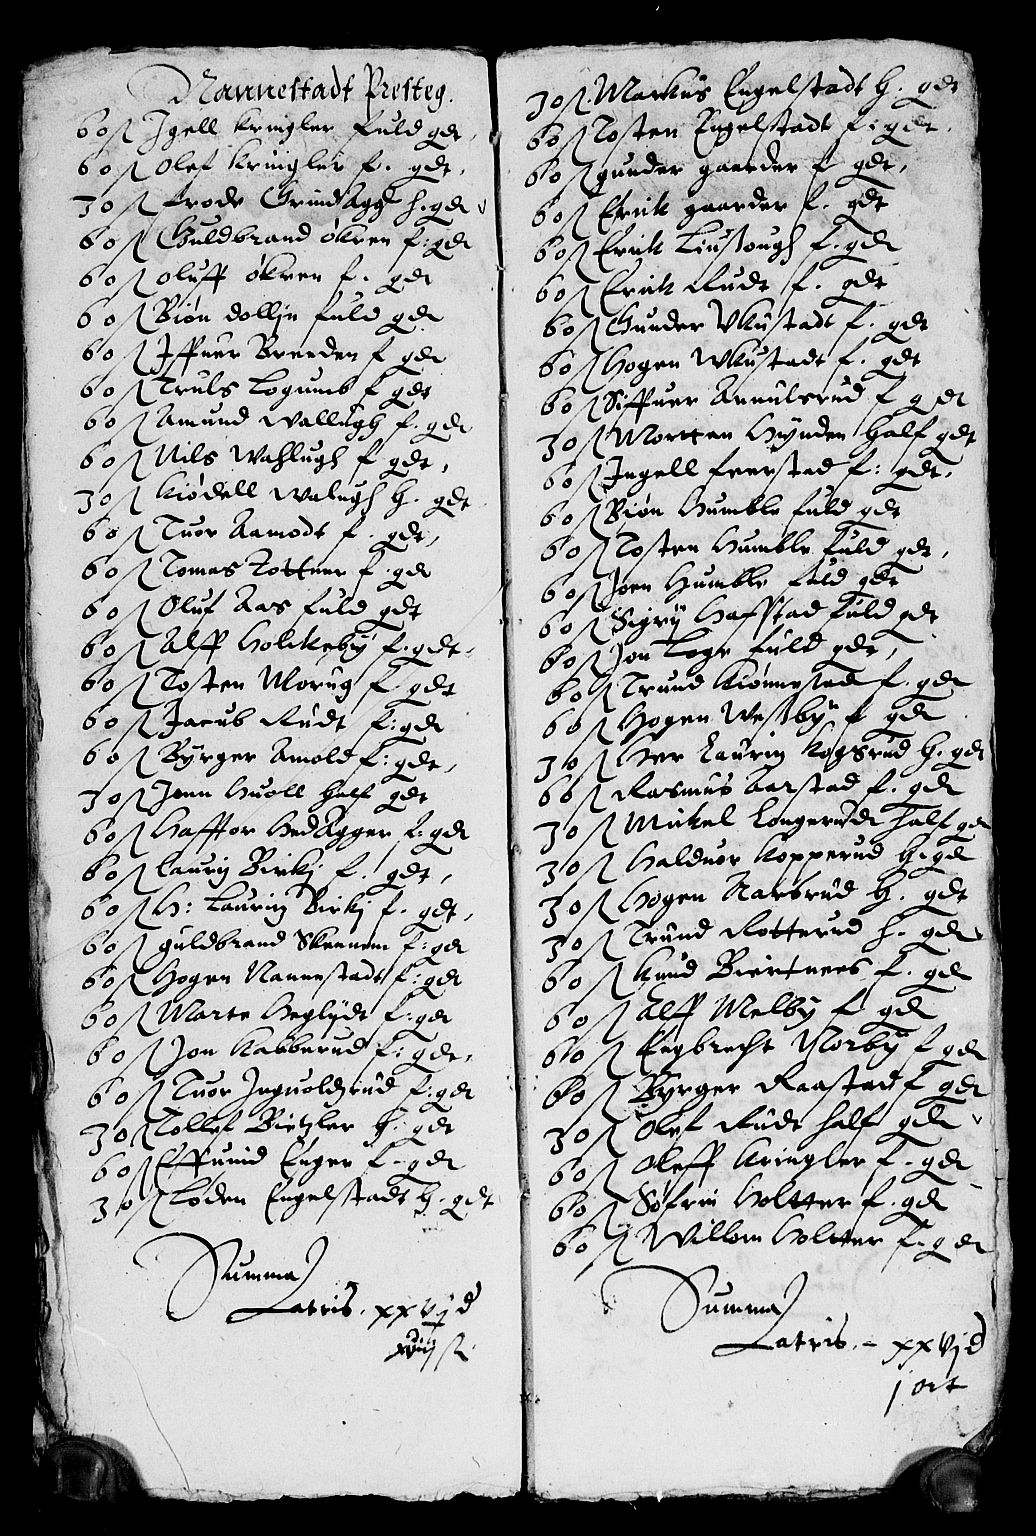 Nannestadt Presteg.
60 ß Igell Kringler fuld gdt,
60 ß Olef Kringler f. gdt,
30 ß frode Grindagg h. gdt
60 ß Guldbrand økren f: gdt
60 ß oluff økren f. gdt
60 ß Biøn dollin fuld gdt
60 ß Iffuer Breeden f gdt
60 ß Truls Logumb f gdt
60 ß Amund Wallugh f. gdt
60 ß Nils Wahlugh f gdt,
30 ß Kiødell Walugh h. gdt
60 ß Tuor Aamodt f. gdt,
60 ß Tomes Tottner f. gdt
60 ß Oluf Aas fuld gdt
60 ß Alff Holckeby f. gdt.
60 ß Tosten Morug f gdt
60 ß Jacub Rudt f: gdt
60 ß Byrger Amold f: gdt,
30 ß Jenn Huoll half gdt
60 ß Hafftor Hedagger f: gdt
60 ß Laurij Birkj f. gdt,
60 ß H: Laurinj Birkj f. gdt,
60 ß guldbrand Skeenem f: gdt
60 ß Hogen Nannestadt f: gdt
60 ß Marte Heglydt f: gdt
60 ß Jon Kabberud f: gdt,
60 ß Tuor Inguoldzrud f: gdt
30 ß Tollef Bietzler h: gdt
60 ß Effuind Enger f. gdt
30 ß Loden Engelstadt h. gdt
Summa
Latris. xxvj d
xviij ß
30 ß. Markus Engelstadt h. gdt
60 ß Tosten Engelstadt f: gdt.
60 ß gunder gaarder f gdt,
60 ß Erick gaarder f. gdt
60 ß Erick Linsough f. gdt
60 ß Erick Rudt f. gdt
60 ß Gunder Wkustadt f. gdt
60 ß Hogen Wkustadt f. gdt
60 ß Siffuer Annulsrud f gdt
30 ß Mortten Hynden half gdt
60 ß Ingell feerstad f: gdt.
60 ß Biøn Humble fuld gdt
60 ß Tosten Humble fuld gdt,
60 ß Joen Humble fuld gdt
60 ß Sigry Haffstad fuld gdt
60 ß Jon Loge fuld gdt,
60 ß Trund Kiønnestad f. gdt
60 ß Hogen Westby f gdt
30 ß Her Laurin Kogsrud h. gdt
60 ß Rasmus Aarstad f. gdt
30 ß Mickel Longerudt half gdt
30 ß Halduor Kopperud h. gdt
30 ß Hogen Narbrud h. gdt
30 ß Trund Rotterud h. gdt
60 ß Knud Biertnees f. gdt
60 ß Alff Melby f gdt
60 ß Engbrecht Norby f gdt
60 ß Byrger Raastad f gdt
30 ß Olef Rudt half gdt
60 ß Oleff Kringler f. gdt
60 ß Søfrin Holtter f. gdt
60 ß Willom Holtter f. gdt
Summa
Latris. - xxvj d
j ort